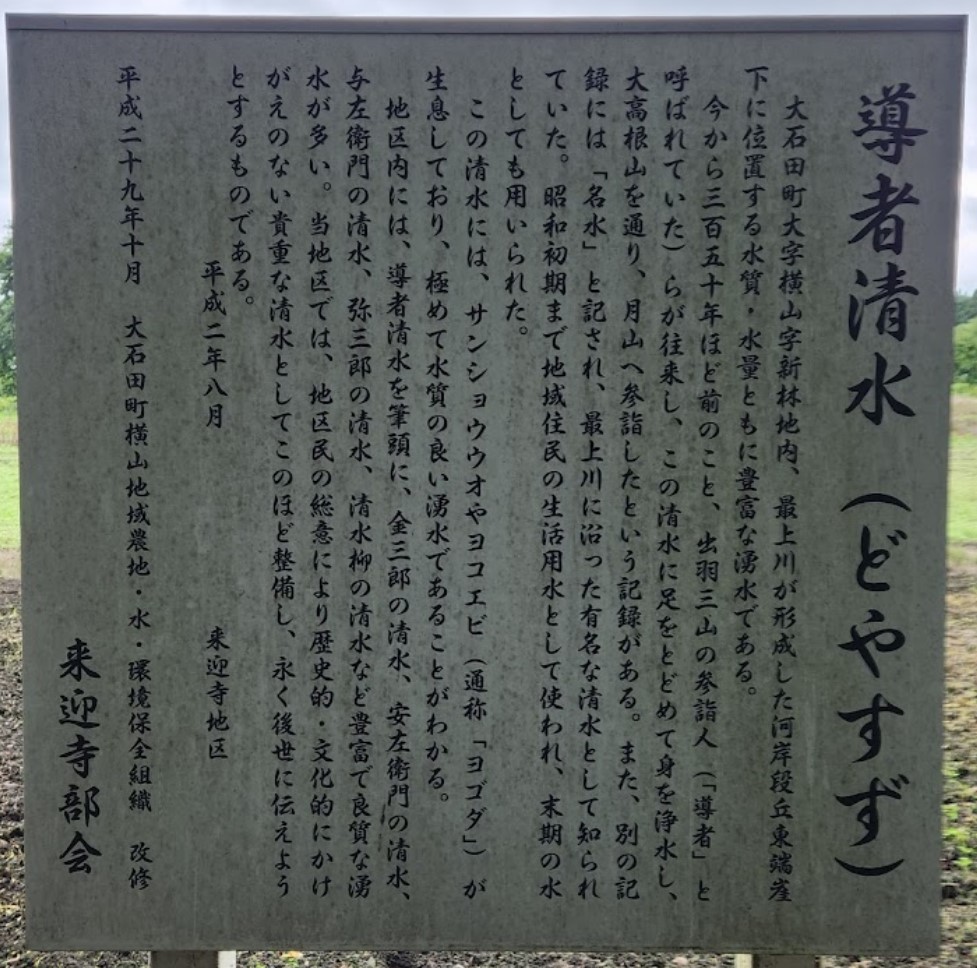 導者清水（どやすず）
大石田町大字横山字新林地内、最上川が形成した河岸段丘東端崖
下に位置する水質・水量ともに豊富な湧水である。
今から三百五十年ほど前のこと、出羽三山の参詣人（「導者」と
呼ばれていた）らが往来し、この清水に足をとどめて身を浄水し、
大高根山を通り、月山へ参詣したという記録がある。また、別の記
録には「名水」と記され、最上川に沿った有名な清水として知られ
ていた。昭和初期まで地域住民の生活用水として使われ、末期の水
としても用いられた。
この清水には、サンショウウオやヨコエビ（通称「ヨゴダ」）が
生息しており、極めて水質の良い湧水であることがわかる。
地区内には、導者清水を筆頭に、金三郎の清水、安左衛門の清水、
与左衛門の清水、弥三郎の清水、清水柳の清水など豊富で良質な湧
水が多い。当地区では、地区民の総意により歴史的・文化的にかけ
がえのない貴重な清水としてこのほど整備し、永く後世に伝えよう
とするものである。
平成二年八月　来迎寺地区
平成二十九年十月　大石田町横山地域農地・水・環境保全組織　改修
来迎寺部会